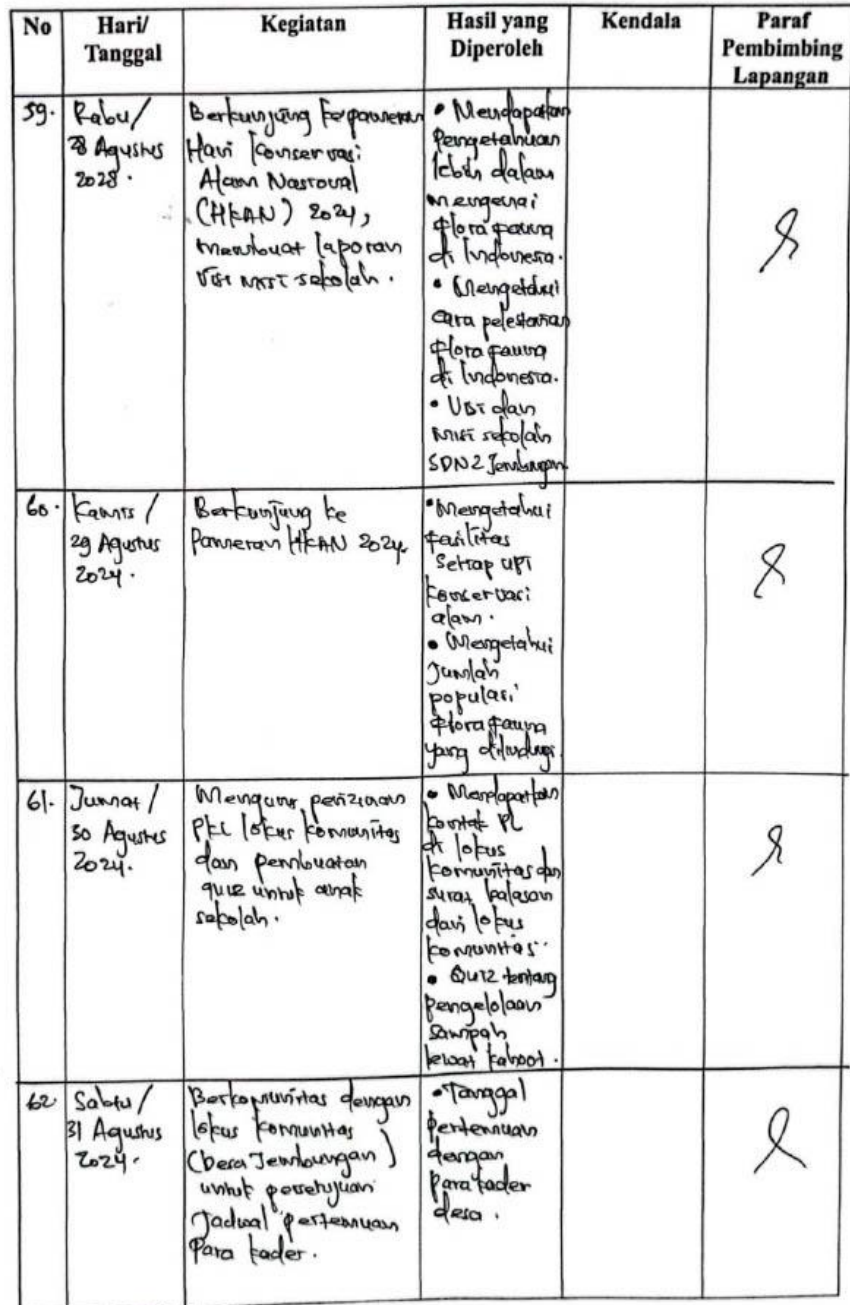 No
Hari/
Tanggal
Kegiatan
Hasil yang
Diperoleh
Kendala
Paraf
Pembimbing
Lapangan
59.
Rabu/
28 Agustus
2028.
Berkunjung ke pameran
Hari Konservasi
Alam Nasional
(HKAN) 2024,
membuat laporan
Visi misi sekolah.
• Mendapatkan
Pengetahuan
lebih dalam
mengenai
flora fauna
di Indonesia.
• Mengetahui
cara pelestarian
flora fauna
di Indonesia.
• Visi dan
misi sekolah
SDN 2 Jembungan
60.
Kamis /
29 Agustus
2024.
Berkunjung ke
Pameran HKAN 2024.
• Mengetahui
fasilitas
Setiap UPT
konservasi
alam.
• Mengetahui
Jumlah
populasi
flora fauna
yang dilindungi.
61.
Jumat /
30 Agustus
2024.
Mengurus perizinan
PKL lokus komunitas
dan pembuatan
quiz untuk anak
sekolah.
• Mendapatkan
kontak PL
di lokus
komunitas dan
surat balasan
dari lokus
komunitas.
• Quiz tentang
pengelolaan
sampah
lewat kahoot.
62.
Sabtu /
31 Agustus
2024.
Berkomunitas dengan
lokus komunitas
(Desa Jembungan)
untuk persetujuan
Jadwal pertemuan
Para kader.
• Tanggal
Pertemuan
dengan
Para kader
desa.